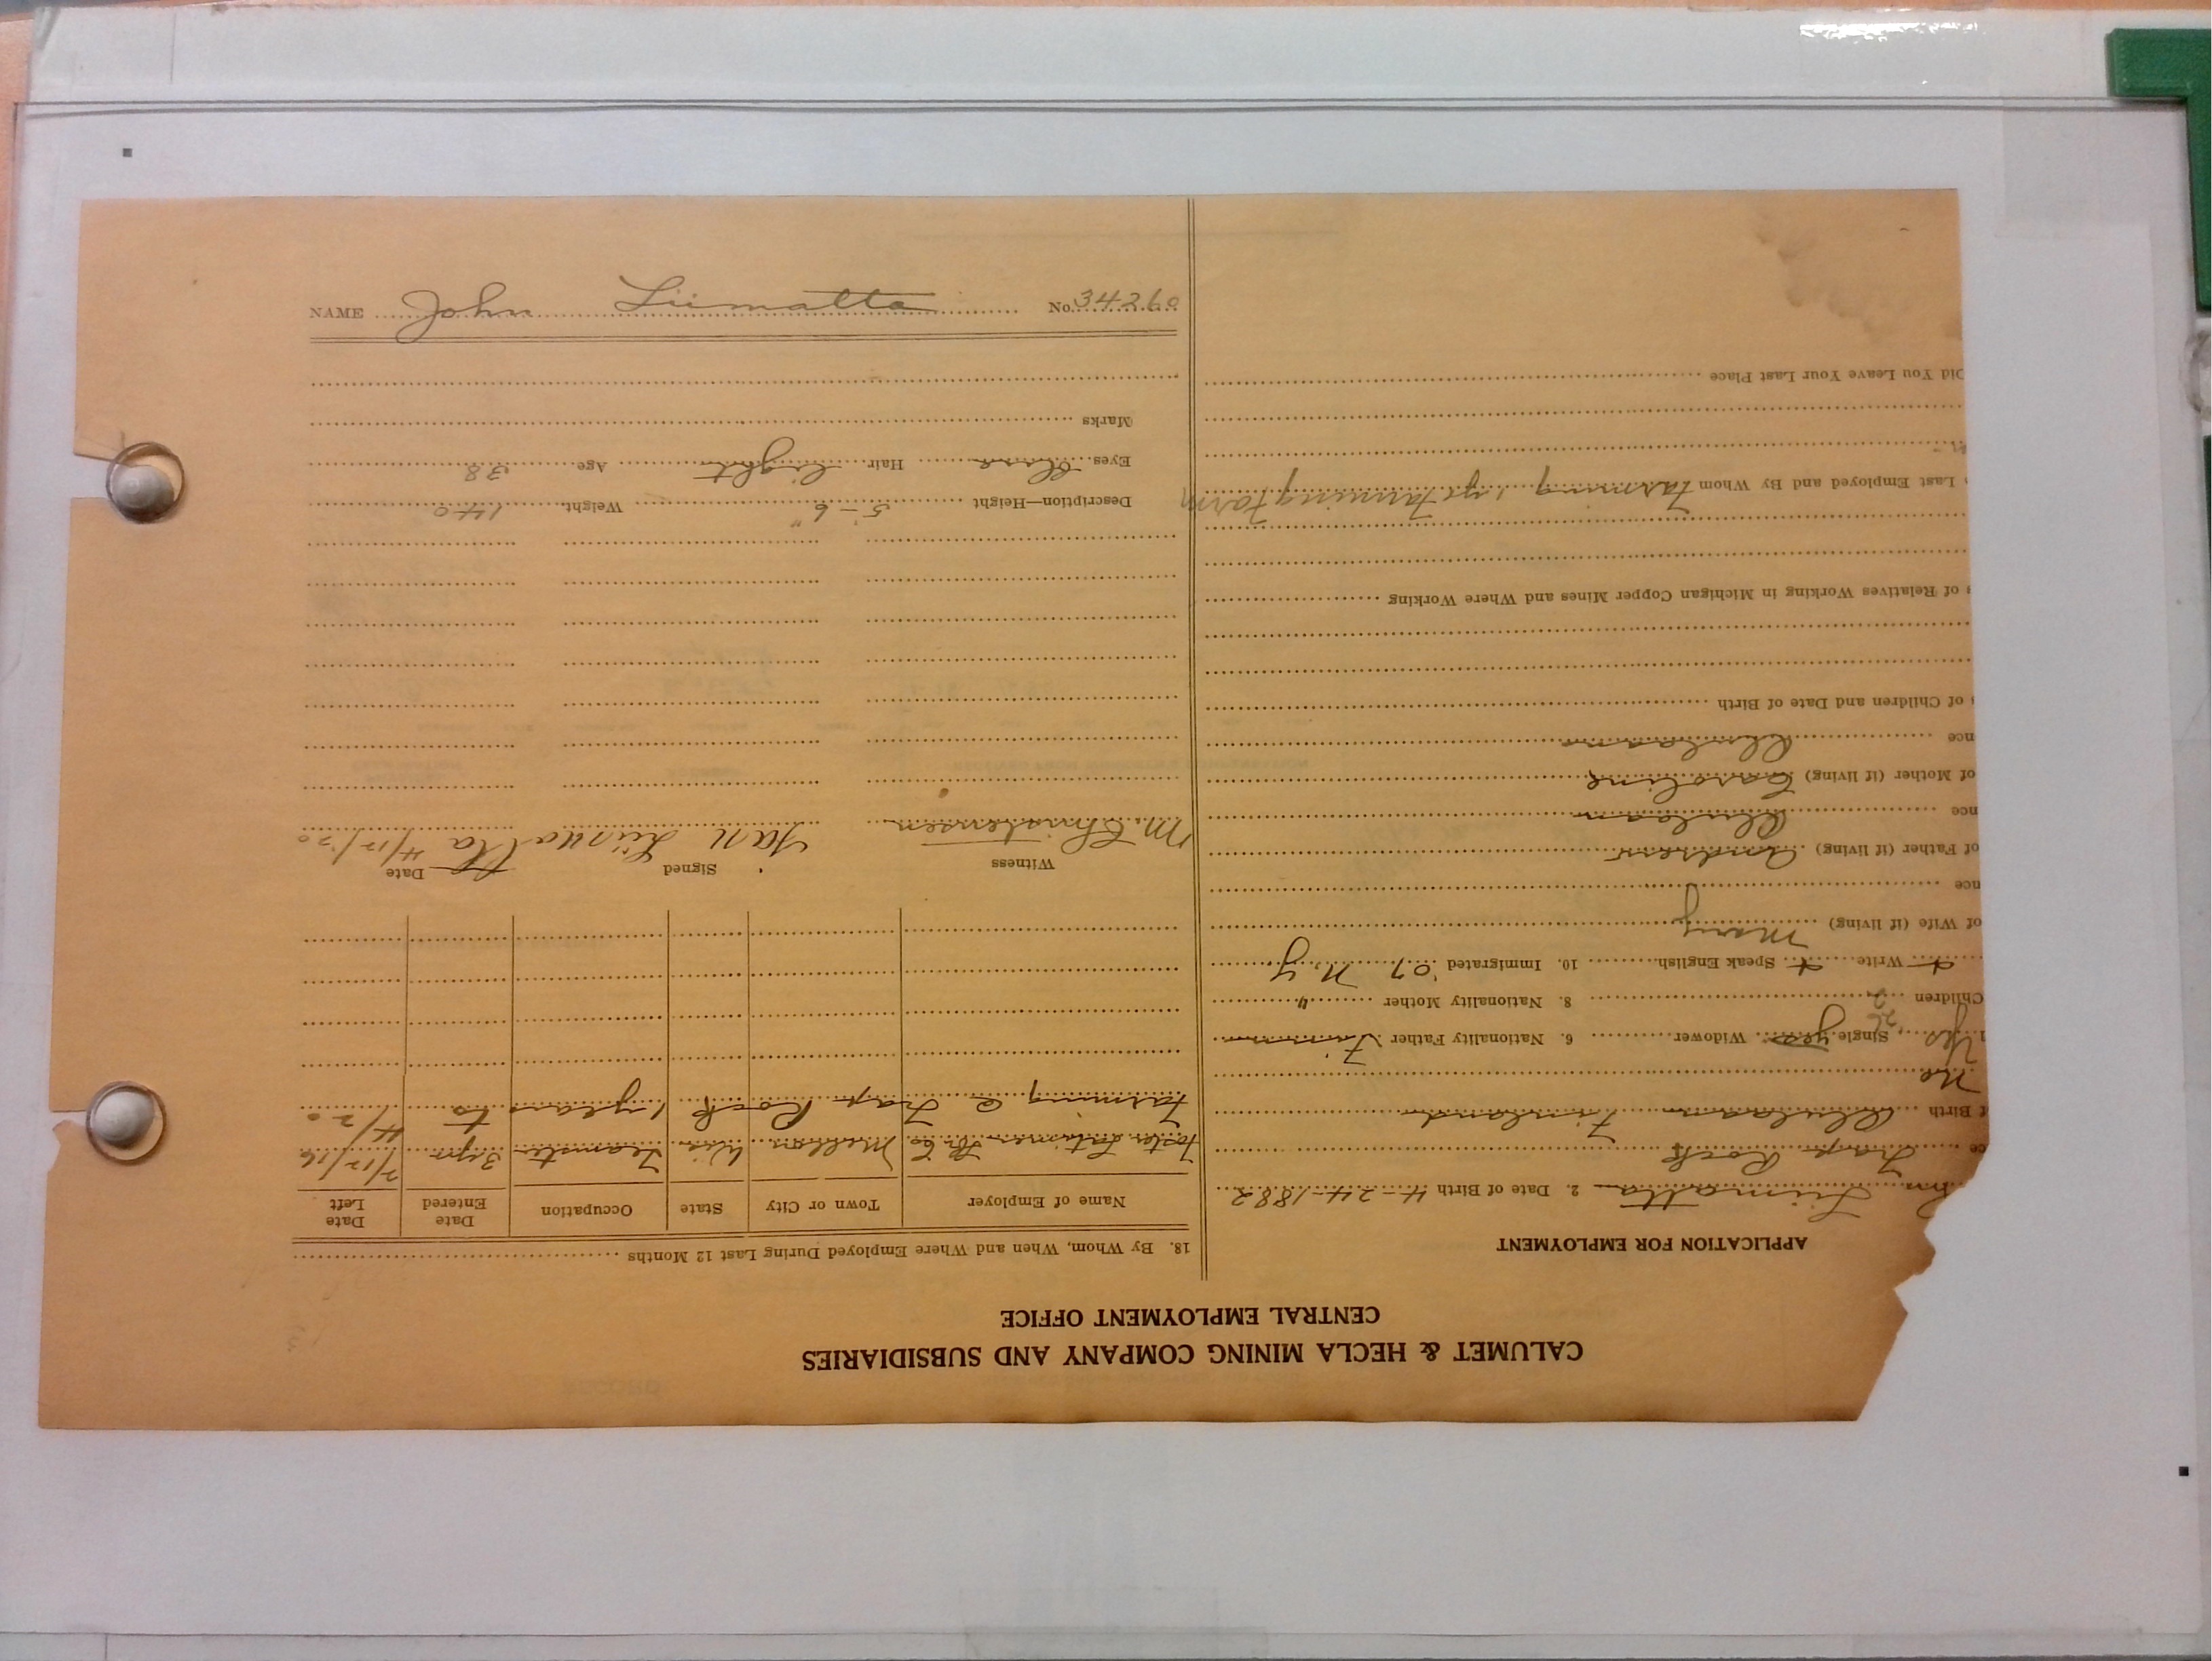 CALUMET & HECLA MINING COMPANY AND SUBSIDIARIES
CENTRAL EMPLOYMENT OFFICE
APPLICATION FOR EMPLOYMENT
Liimatta 2. Date of Birth 4-24-1882
ce Trap Rock
f Birth Finland
No
Yes Single yes Widower 6. Nationality Father Finn
Children 2 8. Nationality Mother "
Write Speak English 10. Immigrated '07 N.Y.
of Wife (if living) Mary
nce
of Father (if living) Andrew
nce
of Mother (if living) Caroline
nce
of Children and Date of Birth
s of Relatives Working in Michigan Copper Mines and Where Working
Last Employed and By Whom Farming 1 yr Farming Farm
Did You Leave Your Last Place
18. By Whom, When and Where Employed During Last 12 Months
Name of Employer Town or City State Occupation Date Entered Date Left
Foster Latimer Mellen Wis Teamster 3 yrs 7/12/16
Farming @ Trap Rock 1 years to 4/20
Witness Signed Date
M. Christensen Jan Liimatta 4/12/20
Description—Height 5-6" Weight 140
Eyes Hair light Age 38
Marks
NAME John Liimatta No. 34260